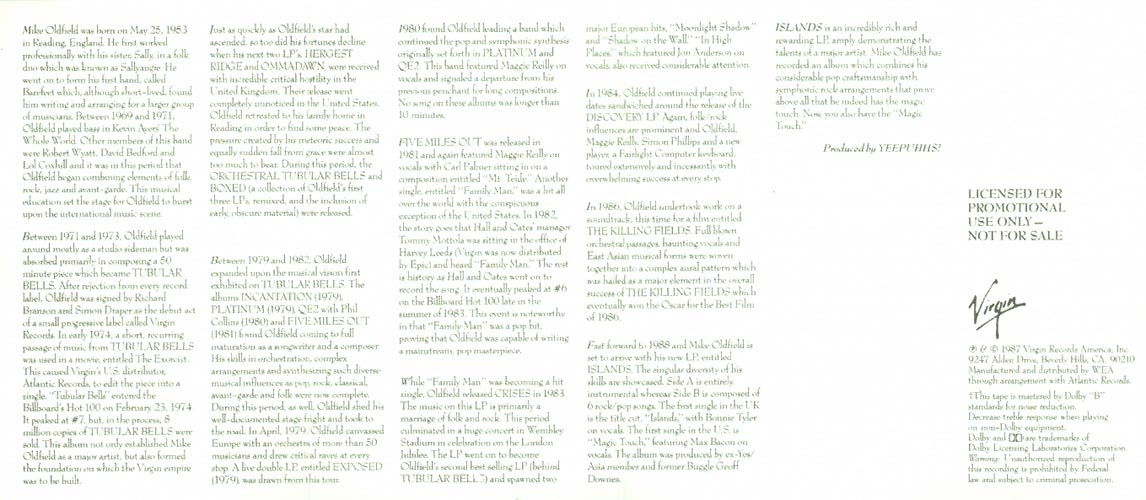 Mike Oldfield was born on May 25, 1953
in Reading, England. He first worked
professionally with his sister, Sally, in a folk
duo which was known as Sallyangie. He
went on to form his first band, called
Barefeet which, although short-lived, found
him writing and arranging for a larger group
of musicians. Between 1969 and 1971,
Oldfield played bass in Kevin Ayers' The
Whole World. Other members of this band
were Robert Wyatt, David Bedford and
Lol Coxhill and it was in this period that
Oldfield began combining elements of folk,
rock, jazz and avant-garde. This musical
education set the stage for Oldfield to burst
upon the international music scene.
Between 1971 and 1973, Oldfield played
around mostly as a studio sideman but was
absorbed primarily in composing a 50
minute piece which became TUBULAR
BELLS. After rejection from every record
label, Oldfield was signed by Richard
Branson and Simon Draper as the debut act
of a small progressive label called Virgin
Records. In early 1974, a short, recurring
passage of music from TUBULAR BELLS
was used in a movie, entitled The Exorcist.
This caused Virgin's U.S. distributor,
Atlantic Records, to edit the piece into a
single. "Tubular Bells" entered the
Billboard's Hot 100 on February 23, 1974
It peaked at #7, but, in the process, 8
million copies of TUBULAR BELLS were
sold. This album not only established Mike
Oldfield as a major artist, but also formed
the foundation on which the Virgin empire
was to be built.
Just as quickly as Oldfield's star had
ascended, so too did his fortunes decline
when his next two LP's, HERGEST
RIDGE and OMMADAWN, were received
with incredible critical hostility in the
United Kingdom. Their release went
completely unnoticed in the United States.
Oldfield retreated to his family home in
Reading in order to find some peace. The
pressure created by his meteoric success and
equally sudden fall from grace were almost
too much to bear. During this period, the
ORCHESTRAL TUBULAR BELLS and
BOXED (a collection of Oldfield's first
three LP's, remixed, and the inclusion of
early, obscure material) were released.
Between 1979 and 1982, Oldfield
expanded upon the musical vision first
exhibited on TUBULAR BELLS. The
albums INCANTATION (1979),
PLATINUM (1979), QE2 with Phil
Collins (1980) and FIVE MILES OUT
(1981) found Oldfield coming to full
maturation as a songwriter and a composer.
His skills in orchestration, complex
arrangements and synthesizing such diverse
musical influences as pop, rock, classical,
avant-garde and folk were now complete.
During this period, as well, Oldfield shed his
well-documented stage fright and took to
the road. In April, 1979, Oldfield canvassed
Europe with an orchestra of more than 50
musicians and drew critical raves at every
stop. A live double LP, entitled EXPOSED
(1979), was drawn from this tour.
1980 found Oldfield leading a band which
continued the pop and symphonic synthesis
originally set forth in PLATINUM and
QE2. This band featured Maggie Reilly on
vocals and signaled a departure from his
previous penchant for long compositions.
No song on these albums was longer than
10 minutes.
FIVE MILES OUT was released in
1981 and again featured Maggie Reilly on
vocals with Carl Palmer sitting in on a
composition entitled "Mt. Teide." Another
single, entitled "Family Man," was a hit all
over the world with the conspicuous
exception of the United States. In 1982,
the story goes that Hall and Oates' manager
Tommy Mottola was sitting in the office of
Harvey Leeds (Virgin was now distributed
by Epic) and heard "Family Man." The rest
is history as Hall and Oates went on to
record the song. It eventually peaked at #6
on the Billboard Hot 100 late in the
summer of 1983. This event is noteworthy
in that "Family Man" was a pop hit,
proving that Oldfield was capable of writing
a mainstream, pop masterpiece.
While "Family Man" was becoming a hit
single, Oldfield released CRISES in 1983.
The music on this LP is primarily a
marriage of folk and rock. This period
culminated in a huge concert in Wembley
Stadium in celebration on the London
Jubilee. The LP went on to become
Oldfield's second best selling LP (behind
TUBULAR BELLS) and spawned two
major European hits, "Moonlight Shadow"
and "Shadow on the Wall." "In High
Places," which featured Jon Anderson on
vocals, also received considerable attention.
In 1984, Oldfield continued playing live
dates sandwiched around the release of the
DISCOVERY LP. Again, folk/rock
influences are prominent and Oldfield,
Maggie Reilly, Simon Phillips and a new
player, a Fairlight Computer keyboard,
toured extensively and incessantly with
overwhelming success at every stop.
In 1986, Oldfield undertook work on a
soundtrack, this time for a film entitled
THE KILLING FIELDS. Full blown
orchestral passages, haunting vocals and
East Asian musical forms were woven
together into a complex aural pattern which
was hailed as a major element in the overall
success of THE KILLING FIELDS which
eventually won the Oscar for the Best Film
of 1986.
Fast forward to 1988 and Mike Oldfield is
set to arrive with his new LP, entitled
ISLANDS. The singular diversity of his
skills are showcased. Side A is entirely
instrumental whereas Side B is composed of
6 rock/pop songs. The first single in the UK
is the title cut, "Islands," with Bonnie Tyler
on vocals. The first single in the U.S. is
"Magic Touch," featuring Max Bacon on
vocals. The album was produced by ex-Yes/
Asia member and former Buggle Geoff
Downes.
ISLANDS is an incredibly rich and
rewarding LP, amply demonstrating the
talents of a major artist. Mike Oldfield has
recorded an album which combines his
considerable pop craftsmanship with
symphonic rock arrangements that prove
above all that he indeed has the magic
touch. Now you also have the "Magic
Touch."
Produced by YEEPUHHS!
LICENSED FOR
PROMOTIONAL
USE ONLY—
NOT FOR SALE
Virgin
℗ & © 1987 Virgin Records America, Inc.
9247 Alden Drive, Beverly Hills, CA. 90210
Manufactured and distributed by WEA
through arrangement with Atlantic Records.
†This tape is mastered by Dolby "B"
standards for noise reduction.
Decrease treble response when playing
on non-Dolby equipment.
Dolby and are trademarks of
Dolby Licensing Laboratories Corporation.
Warning: Unauthorized reproduction of
this recording is prohibited by Federal
law and subject to criminal prosecution.